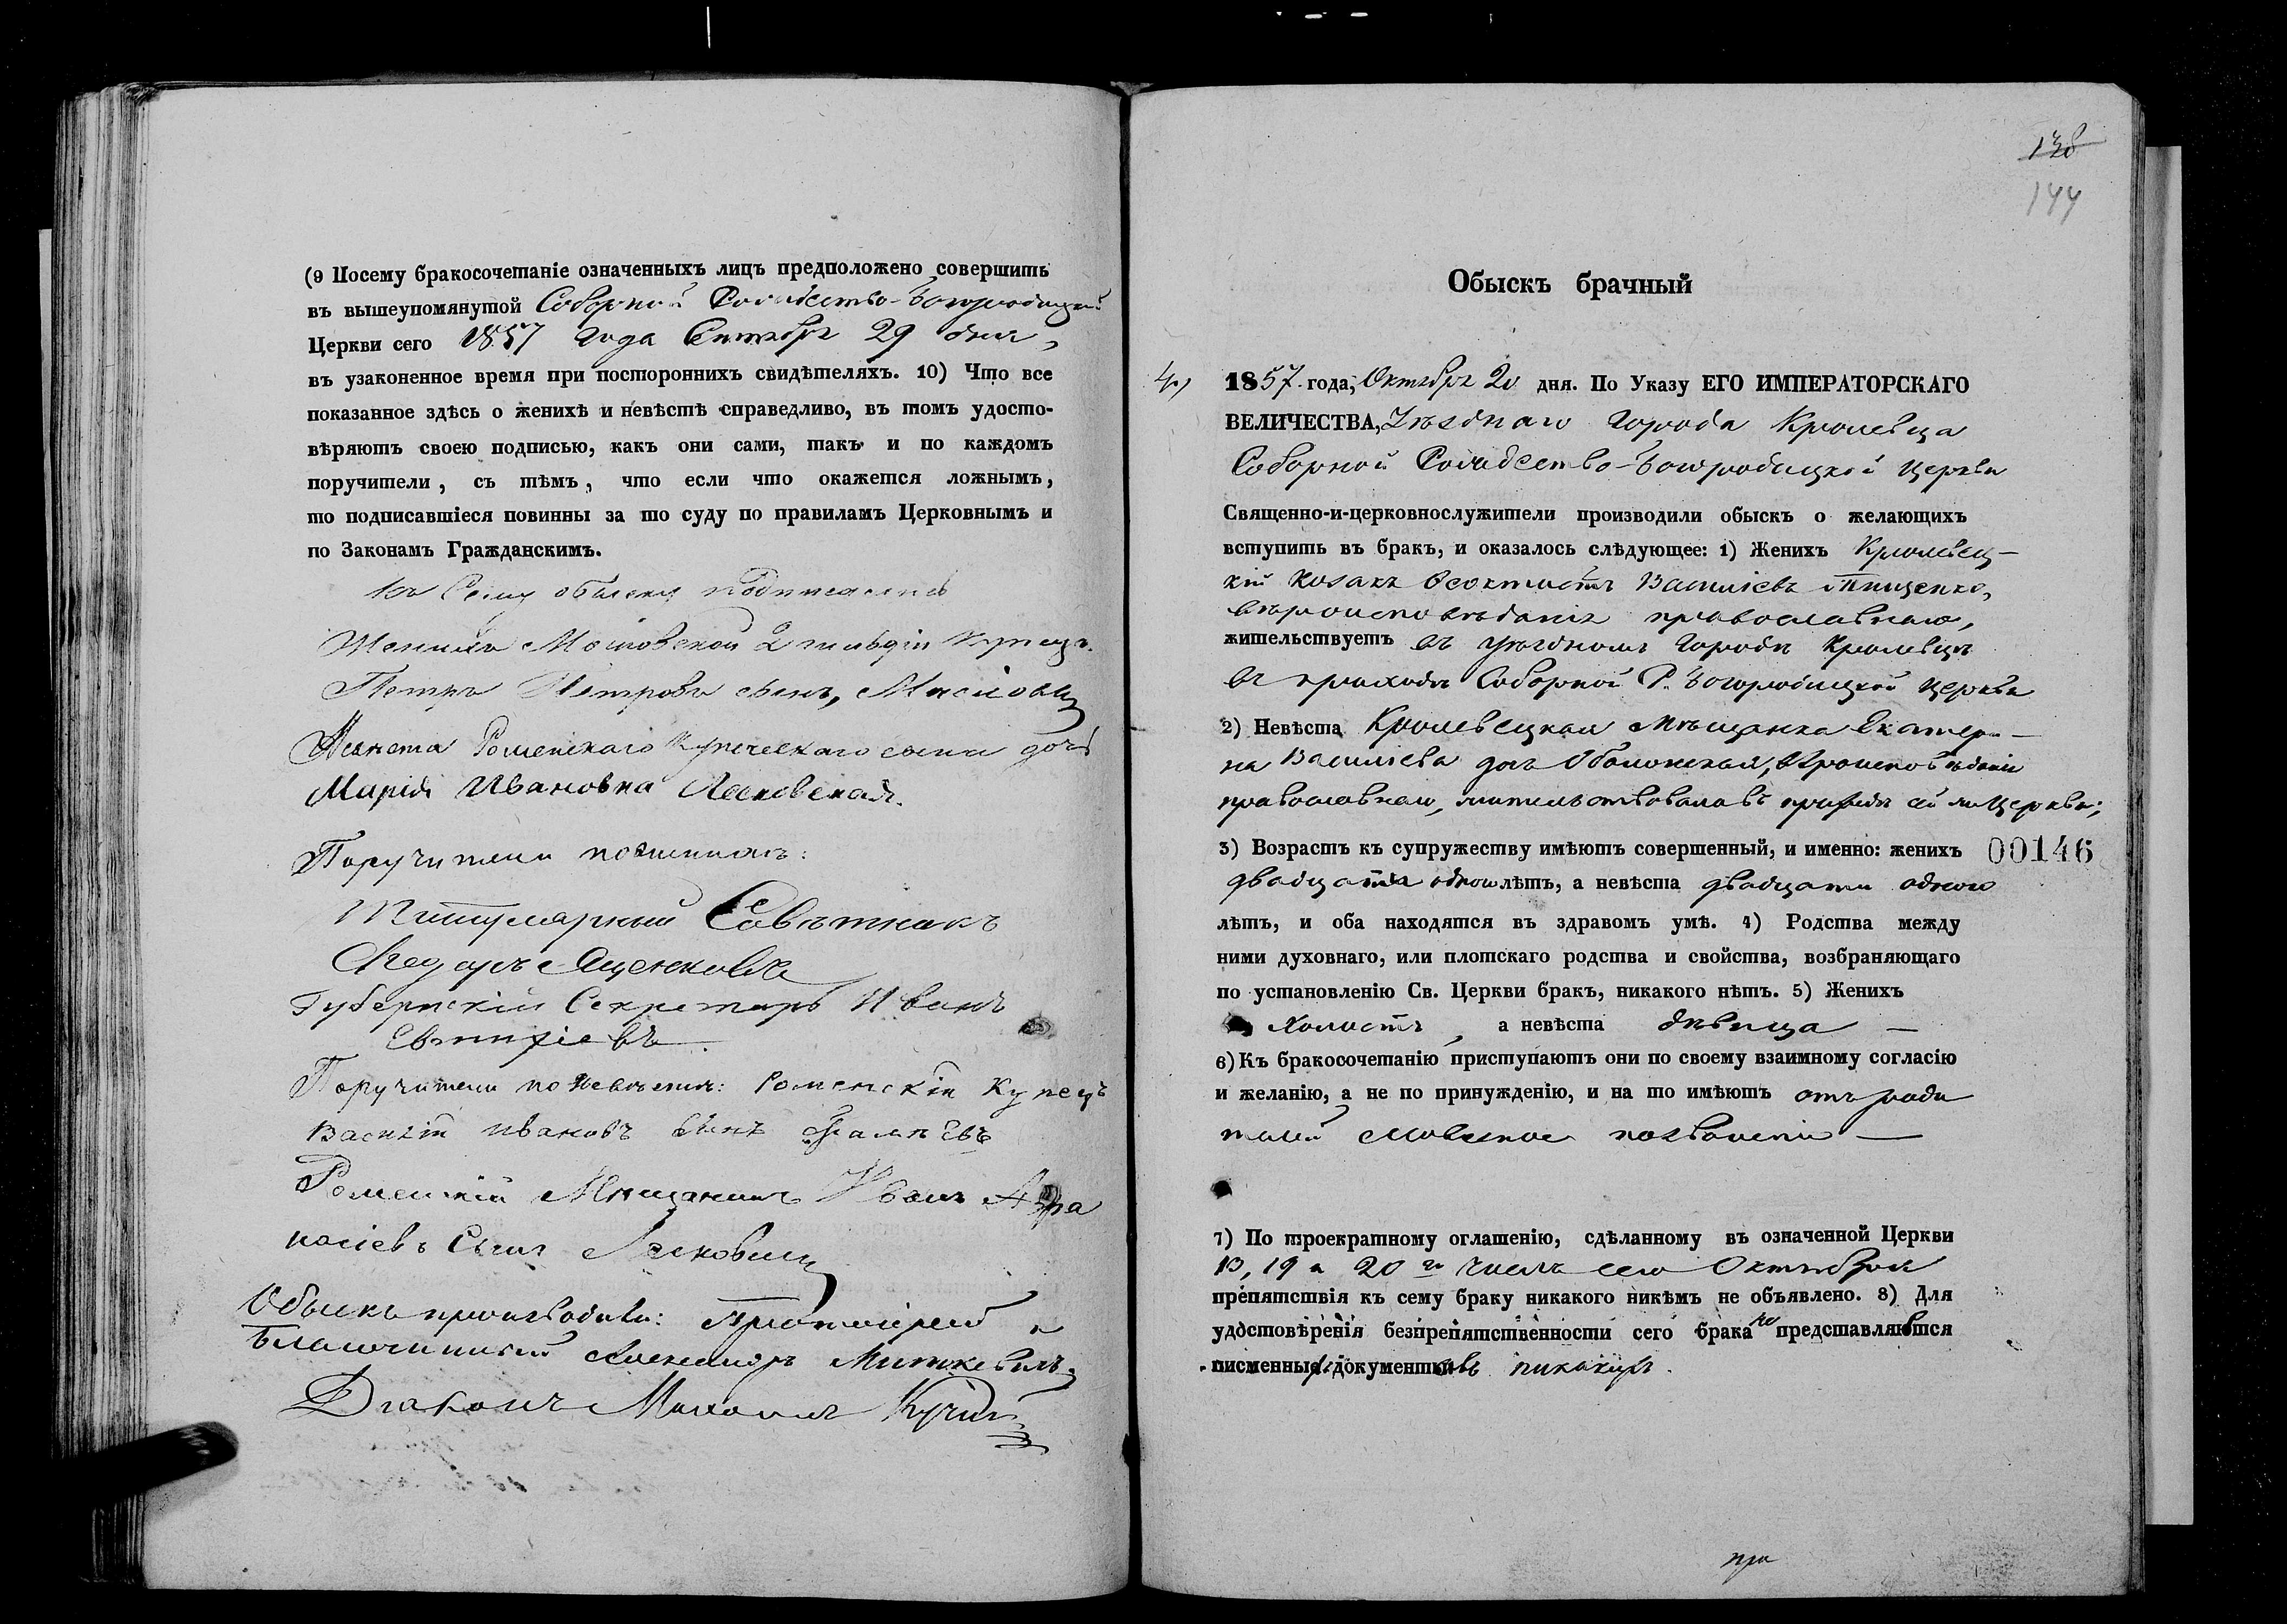 (9 Посему бракосочетаніе означенныхъ лицъ предположено совершить
въ вышеупомянутой Соборной Рождество-Богородицкой
Церкви сего 1857 года Сентября 29 дня,
въ узаконенное время при постороннихъ свидѣтеляхъ. 10) Что все
показанное здѣсь о женихѣ и невѣстѣ справедливо, въ томъ удосто-
вѣряютъ своею подписью, какъ они сами, такъ и по каждомъ
поручители, съ тѣмъ, что если что окажется ложнымъ,
то подписавшіеся повинны за то суду по правиламъ Церковнымъ и
по Законамъ Гражданскимъ.
Къ Сему обыску подписались
Женихъ 2 гильдіи купецъ
Петръ Петровъ сынъ,
Невѣста Роменскаго купеческаго сына дочь
Марія Ивановна Лесковская.
Поручители по женихѣ:
Титулярный Совѣтникъ
Губернскій Секретарь Иванъ
Евтихіевъ
Поручители по невѣстѣ: Роменскій купецъ
Василій Ивановъ сынъ
Роменскій Мѣщанинъ Иванъ Афа
насіевъ Сынъ
Обыскъ производили: Протоіерей и
Благочинный Александръ Миткевичъ
Діаконъ
138
144
Обыскъ брачный
4,
1857 года, Октября 20 дня. По Указу ЕГО ИМПЕРАТОРСКАГО
ВЕЛИЧЕСТВА, Уѣзднаго города Кролевца
Соборной Рождество-Богородицкой Церкви
Священно-и-церковнослужители производили обыскъ о желающихъ
вступить въ бракъ, и оказалось слѣдующее: 1) Женихъ Кролевец-
кій козакъ Феоктистъ Василіевъ Тищенко,
вѣроисповѣданія православнаго,
жительствуетъ въ уѣздномъ городѣ Кролевцѣ
въ приходѣ Соборной Р. Богородицкой Церкви
2) Невѣста Кролевецкая мѣщанка Екатери-
на Василіева дочь Оболонская, вѣроисповѣданія
православнаго, жительствовала въ приходѣ сей же Церкви;
3) Возрастъ къ супружеству имѣютъ совершенный, и именно: женихъ
00146
двадцати одного лѣтъ, а невѣста двадцати одного
лѣтъ, и оба находятся въ здравомъ умѣ. 4) Родства между
ними духовнаго, или плотскаго родства и свойства, возбраняющаго
по установленію Св. Церкви бракъ, никакого нѣтъ. 5) Женихъ
холостъ, а невѣста дѣвица —
6) Къ бракосочетанію приступаютъ они по своему взаимному согласію
и желанію, а не по принужденію, и на то имѣютъ отъ роди
телей словесное позволеніе —
7) По троекратному оглашенію, сдѣланному въ означенной Церкви
13, 19 и 20 го числъ сего Октября
препятствія къ сему браку никакого никѣмъ не объявлено. 8) Для
удостовѣренія безпрепятственности сего брака не представляются
писменныхъ документовъ никакихъ.
при